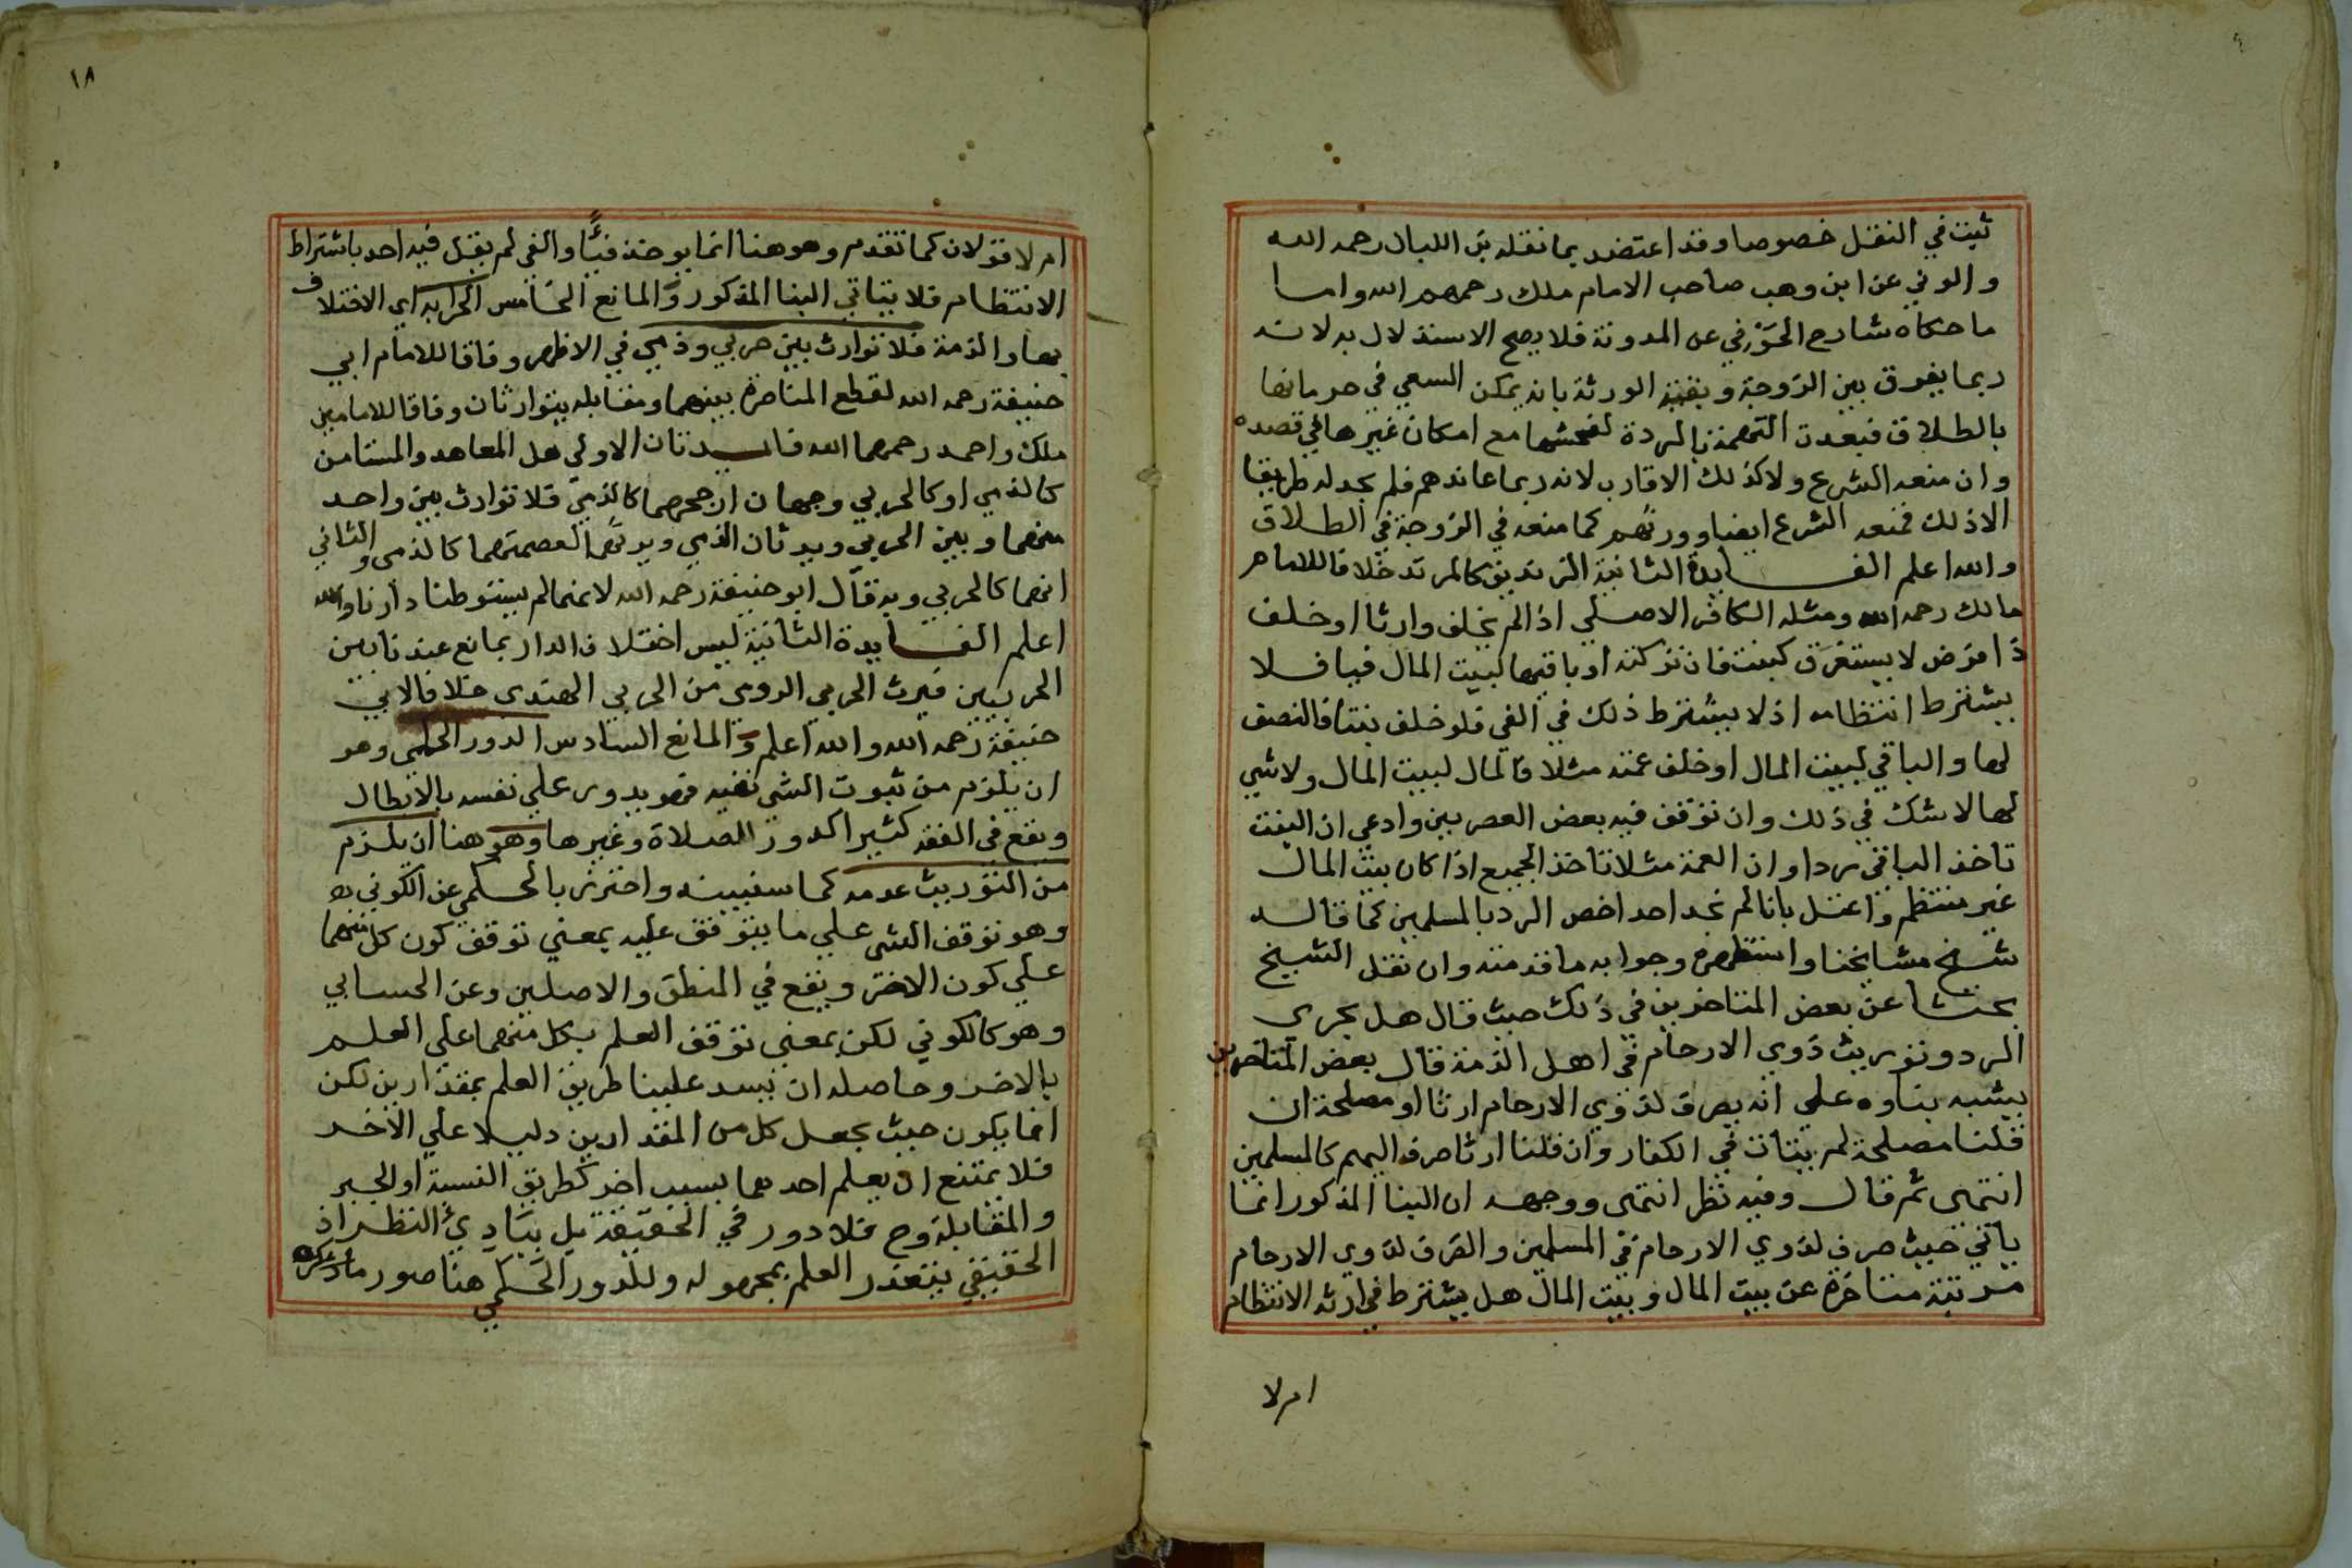 ثبت في النقل خصوصا وقد اعتضد بما نقله بن اللبان رحمه الله
والوني عن ابن وهب صاحب الامام ملك رحمهم الله واما
ما حكاه شارح الحَوْفي عن المدونة فلا يصح الاستدلال به لانه
ربما يفرق بين الزوجة وبقية الورثة بانه يمكن السعي في حرمانها
بالطلاق فبعدت التهمة بالردة لفحشها مع امكان غيرها في قصده
وان منعه الشرع ولا كذلك الاقارب لانه ربما عاندهم فلم يجد له طريقا
الا ذلك فمنعه الشرع ايضا وورثهم كما منعه في الزوجة في الطلاق
والله اعلم الفـايدة الثانية الزنديق كالمرتد خلافا للامام
مالك رحمه الله ومثله الكافر الاصلي اذا لم يخلف وارثا او خلف
ذا فرض لا يستغرق كبنت فان تركته او باقيها لبيت المال فيا فلا
يشترط انتظامه اذ لا يشترط ذلك في الفي فلو خلف بنتا فالنصف
لها والباقي لبيت المال او خلف عمته مثلا فالمال لبيت المال ولا شي
لها لا شك في ذلك وان توقف فيه بعض العصريين وادعي ان البنت
تاخذ الباقي ردا وان العمة مثلا تاخذ الجميع اذا كان بيت المال
غير منتظم واعتل بانا لم نجد احد اخص الرد بالمسلمين كما قاله
شيخ مشايخنا واستظهره وجوابه ما قدمته وان نقل الشيخ
بحثا عن بعض المتاخرين في ذلك حيث قال هل يجري
الرد وتوريث ذوي الارحام في اهل الذمة قال بعض المتاخرين
يشبه بناوه علي انه يصرف لذوي الارحام ارثا او مصلحة ان
قلنا مصلحة لم يتات في الكفار وان قلنا ارثا صرف اليهم كالمسلمين
انتهي ثم قال وفيه نظر انتهي ووجهه ان البنا المذكور انما
ياتي حيث صرف لذوي الارحام في المسلمين والصرف لذوي الارحام
مرتبة متاخرة عن بيت المال وبيت المال هل يشترط في ارثه الانتظام
ام لا
١٨
ام لا قولان كما تقدم وهو هنا انما يوخذ فيًّا والفي لم يقل فيه احد باشتراط
الانتظام فلا يتاتي البنا المذكور والمانع الخامس الحرابه اي الاختلاف
بها والذمة فلا توارث بين حربي وذمي في الاظهر وفاقا للامام ابي
حنيفة رحمه الله لقطع المناصرة بينهما ومقابله يتوارثان وفاقا للامامين
ملك واحمد رحمهما الله فايـدتان الاولي هل المعاهد والمستامن
كالذمي او كالحربي وجهان ارجحهما كالذمي فلا توارث بين واحد
منهما وبين الحربي ويرثان الذمي ويرثهما لعصمتهما كالذمي والثاني
انهما كالحربي وبه قال ابو حنيفة رحمه الله لانهما لم يستوطنا دارنا والله
اعلم الفـايدة الثانية ليس اختلاف الدار بمانع عندنا بين
الحربيين فيرث الحربي الرومي من الحربي الهندي خلافا لابي
حنيفة رحمه الله والله اعلم والمانع السادس الدور الحكمي وهو
ان يلزم من ثبوت الشي نفيه فهو يدور علي نفسه بالابطال
ويقع في الفقه كثيرا كدور الصلاة وغيرها وهو هنا ان يلزم
من التوريث عدمه كما سنبينه واحترز بالحكمي عن الكوني
وهو توقف الشي علي ما يتوقف عليه بمعني توقف كون كل منهما
علي كون الاخر ويقع في المنطق والاصلين وعن الحسابي
وهو كالكوني لكن بمعني توقف العلم بكل منهما علي العلم
بالاخر وحاصله ان ينسد علينا طريق العلم بمقدارين لكن
انما يكون حيث يجعل كل من المقدارين دليلا علي الاخر
فلا يمتنع ان يعلم احدهما بسبب اخر كطريق النسبة او الجبر
والمقابلة وح فلا دور في الحقيقة بل ببادئ النظر اذ
الحقيقي يتعذر العلم بمجهوله وللدور الحكمي هنا صور ما ذكره